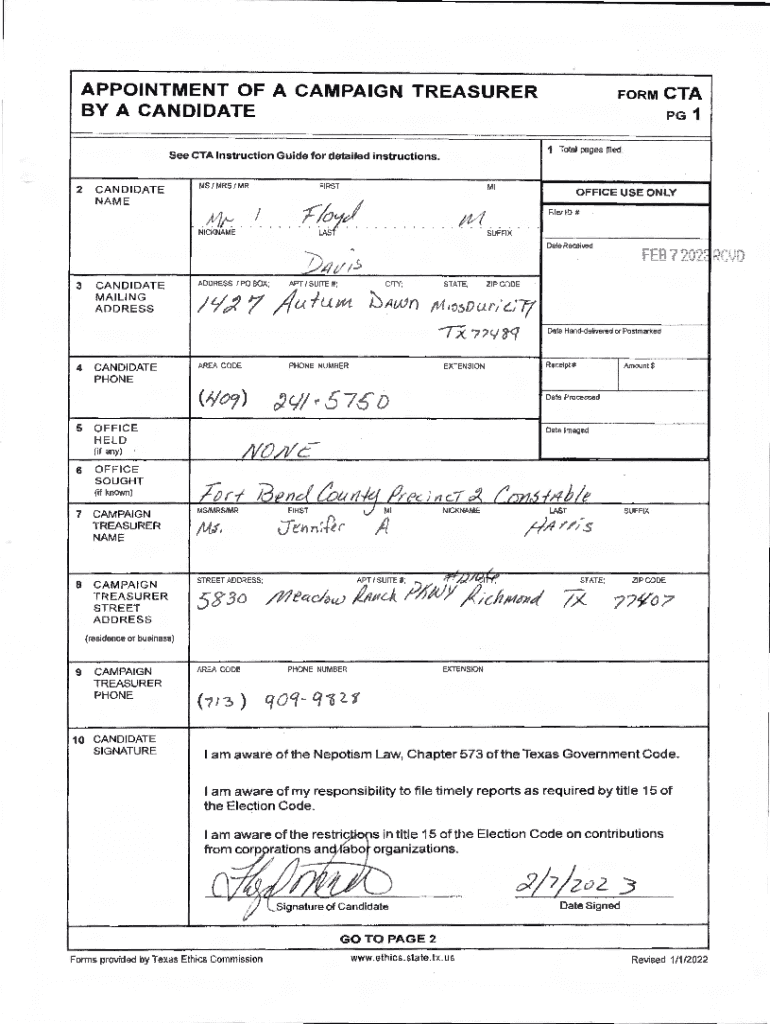 APPOINTMENT OF A CAMPAIGN TREASURER BY A CANDIDATE
FORM CTA
PG 1
See CTA Instruction Guide for detailed instructions.
1 Total pages filed:
2 CANDIDATE NAME
MS / MRS / MR FIRST MI
Mr Floyd M
NICKNAME LAST SUFFIX
Davis
OFFICE USE ONLY
Filer ID #
Date Received
FEB 7 2023 RCVD
3 CANDIDATE MAILING ADDRESS
ADDRESS / PO BOX; APT / SUITE #; CITY; STATE; ZIP CODE
1427 Autum Dawn Missouri City
TX 77489
Date Hand-delivered or Postmarked
4 CANDIDATE PHONE
AREA CODE PHONE NUMBER EXTENSION
(409) 241-5750
Receipt # Amount $
Date Processed
5 OFFICE HELD (if any)
NONE
Date Imaged
6 OFFICE SOUGHT (if known)
Fort Bend County Precinct 2 Constable
7 CAMPAIGN TREASURER NAME
MS/MRS/MR FIRST MI NICKNAME LAST SUFFIX
Ms. Jennifer A Harris
8 CAMPAIGN TREASURER STREET ADDRESS
(residence or business)
STREET ADDRESS; APT / SUITE #; CITY; STATE; ZIP CODE
5830 Meadow Ranch PKWY Richmond TX 77407
9 CAMPAIGN TREASURER PHONE
AREA CODE PHONE NUMBER EXTENSION
(713) 909-9828
10 CANDIDATE SIGNATURE
I am aware of the Nepotism Law, Chapter 573 of the Texas Government Code.
I am aware of my responsibility to file timely reports as required by title 15 of
the Election Code.
I am aware of the restrictions in title 15 of the Election Code on contributions
from corporations and labor organizations.
2/7/2023
Signature of Candidate Date Signed
GO TO PAGE 2
Forms provided by Texas Ethics Commission www.ethics.state.tx.us Revised 1/1/2022